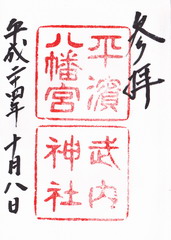 参拝
平濱
八幡宮
武内
神社
平成二四年十月八日